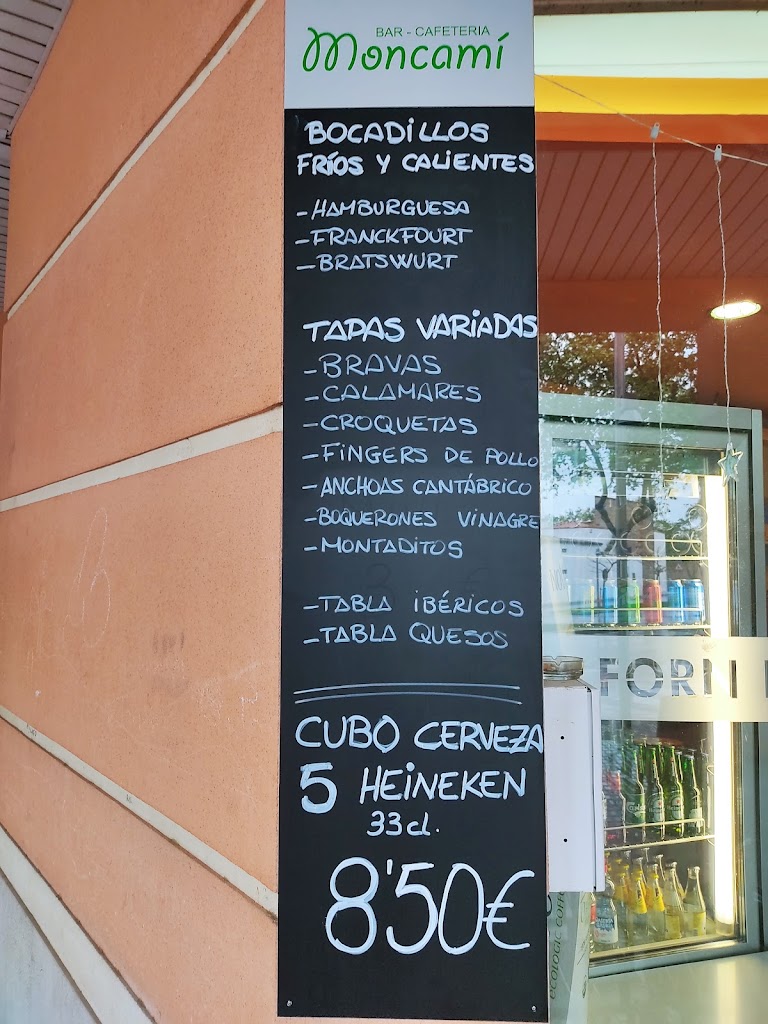 BAR - CAFETERIA
Moncamí
BOCADILLOS
FRÍOS Y CALIENTES
-HAMBURGUESA
-FRANCKFOURT
-BRATSWURT
TAPAS VARIADAS
-BRAVAS
-CALAMARES
-CROQUETAS
-FINGERS DE POLLO
-ANCHOAS CANTÁBRICO
-BOQUERONES VINAGRE
-MONTADITOS
-TABLA IBÉRICOS
-TABLA QUESOS
CUBO CERVEZA
5 HEINEKEN
33cl.
8'50€
FORN